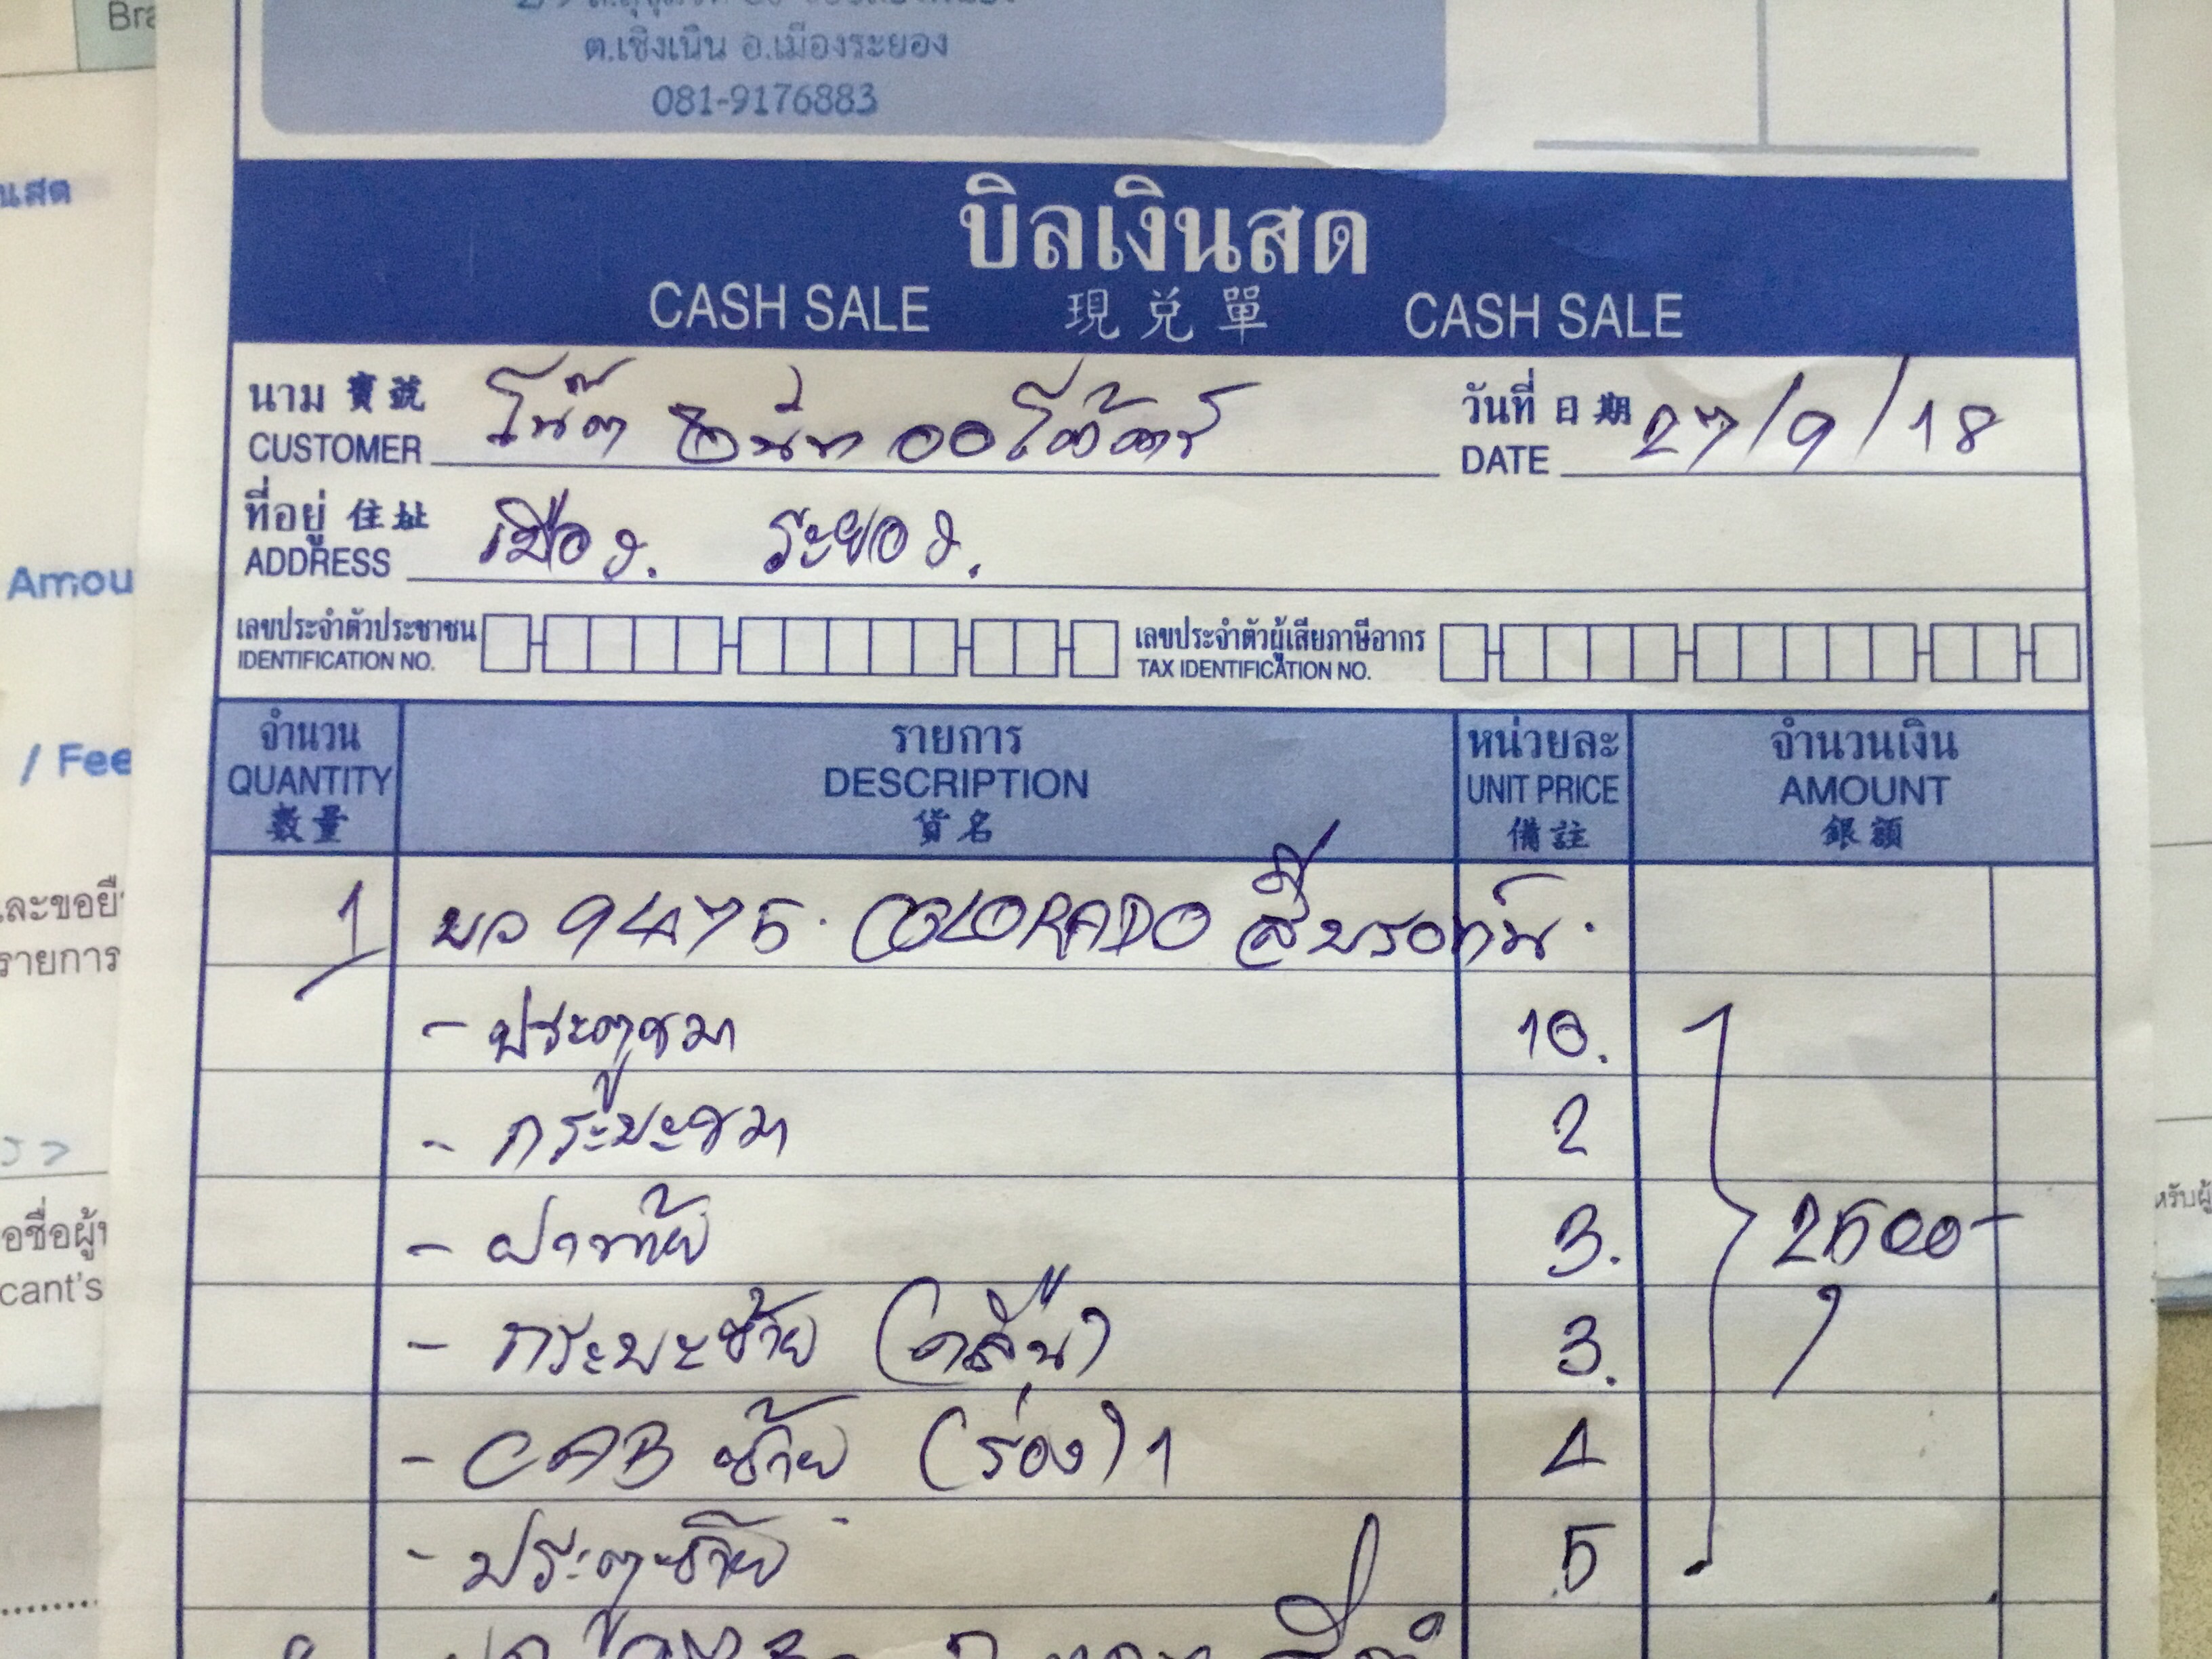 Bra
ต.เชิงเนิน อ.เมืองระยอง
081-9176883
นสด
บิลเงินสด
CASH SALE 現兌單 CASH SALE
นาม 寶號 CUSTOMER โน๊ต ออโต้คาร์
วันที่ 日期 DATE 27/9/18
ที่อยู่ 住址 ADDRESS เมือง. ระยอง.
Amou
เลขประจำตัวประชาชน IDENTIFICATION NO.
เลขประจำตัวผู้เสียภาษีอากร TAX IDENTIFICATION NO.
/ Fee
จำนวน รายการ หน่วยละ จำนวนเงิน
QUANTITY DESCRIPTION UNIT PRICE AMOUNT
数量 貨名 備註 銀額
1 9475. COLORADO สีบรอทน์.
- ประตูขวา 10.
- กระบะขวา 2
- ฝาท้าย 3.
2500-
- กระบะซ้าย (คลื่น) 3.
- CAB ซ้าย (ร่อง) 1 1
- ประตูซ้าย 5
และขอยื
รายการ
อชื่อผู้
cant's
หรับผู้